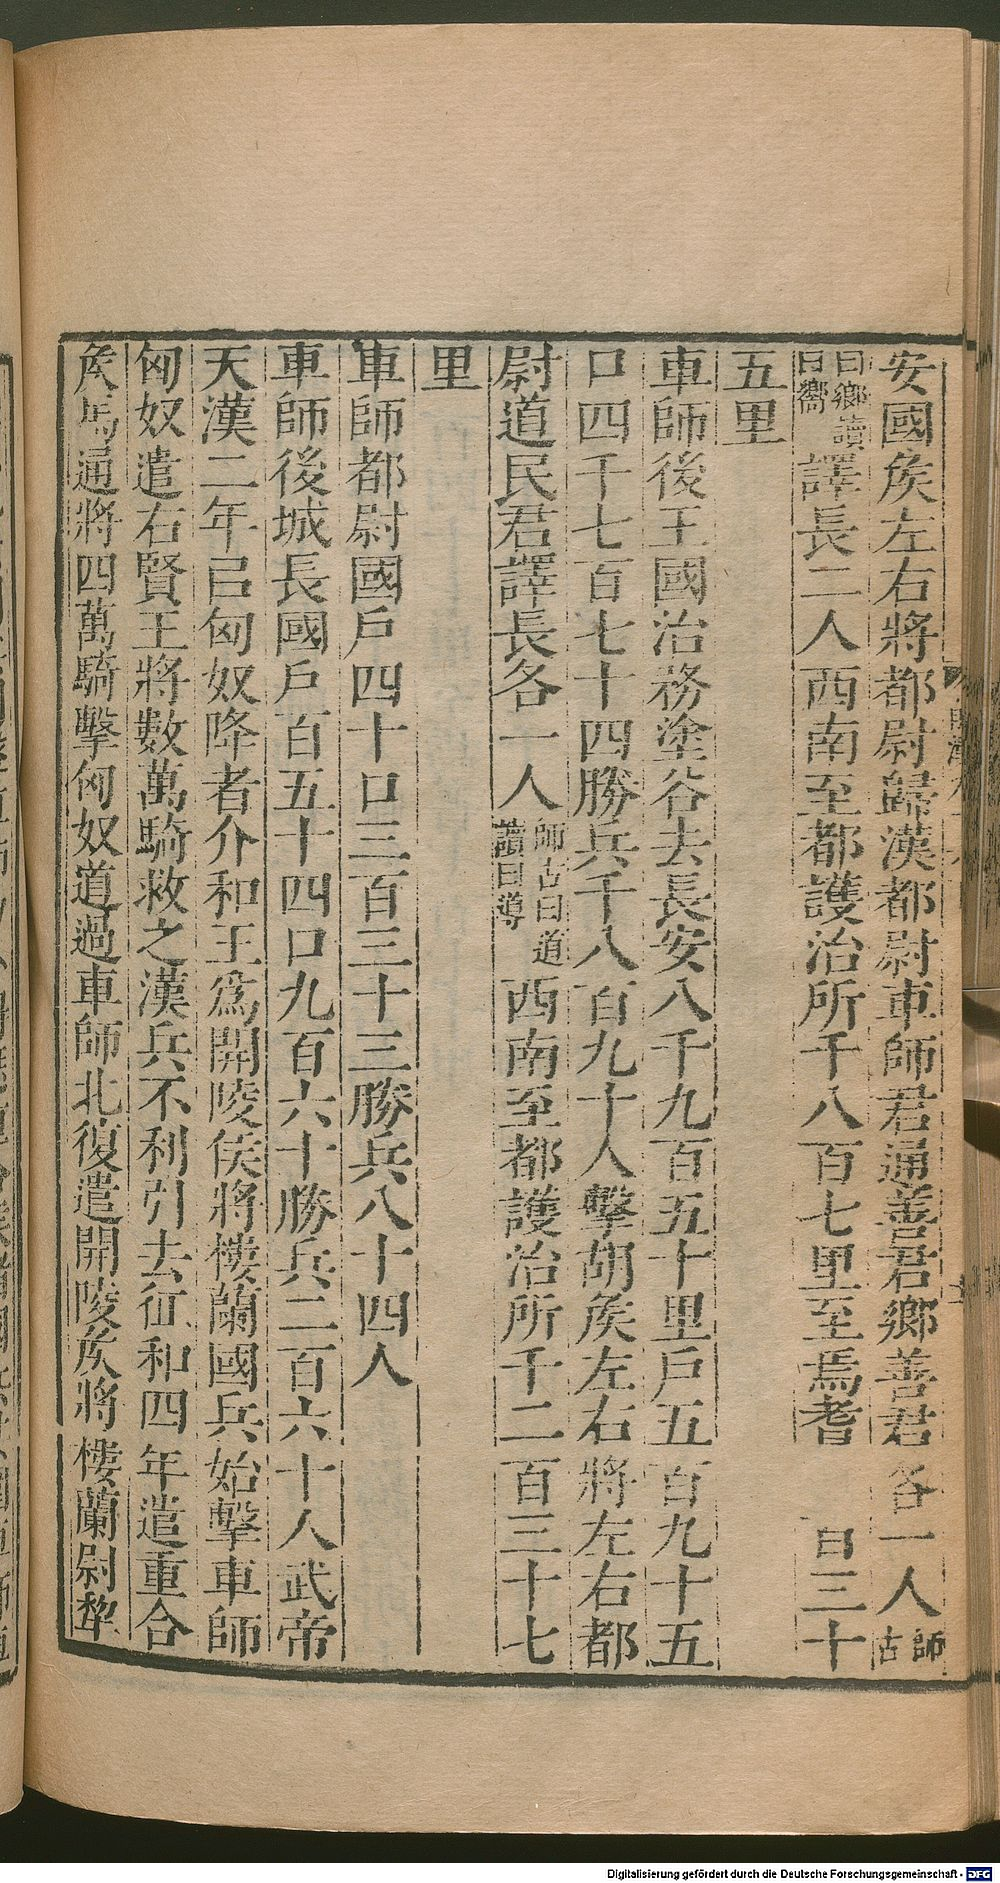 安國矦左右將都尉歸漢都尉車師君通善君鄉善君各一人師古
曰鄉讀曰嚮譯長二人西南至都護治所千八百七里至焉耆 百三十
五里
車師後王國治務塗谷去長安八千九百五十里戶五百九十五
口四千七百七十四勝兵千八百九十人擊胡矦左右將左右都
尉道民君譯長各一人師古曰道讀曰導西南至都護治所千二百三十七
里
車師都尉國戶四十口三百三十三勝兵八十四人
車師後城長國戶百五十四口九百六十勝兵二百六十人武帝
天漢二年㠯匈奴降者介和王爲開陵侯將樓蘭國兵始擊車師
匈奴遣右賢王將數萬騎救之漢兵不利引去征和四年遣重合
矦馬通將四萬騎擊匈奴道過車師北復遣開陵矦將樓蘭尉犂
Digitalisierung gefördert durch die Deutsche Forschungsgemeinschaft - DFG